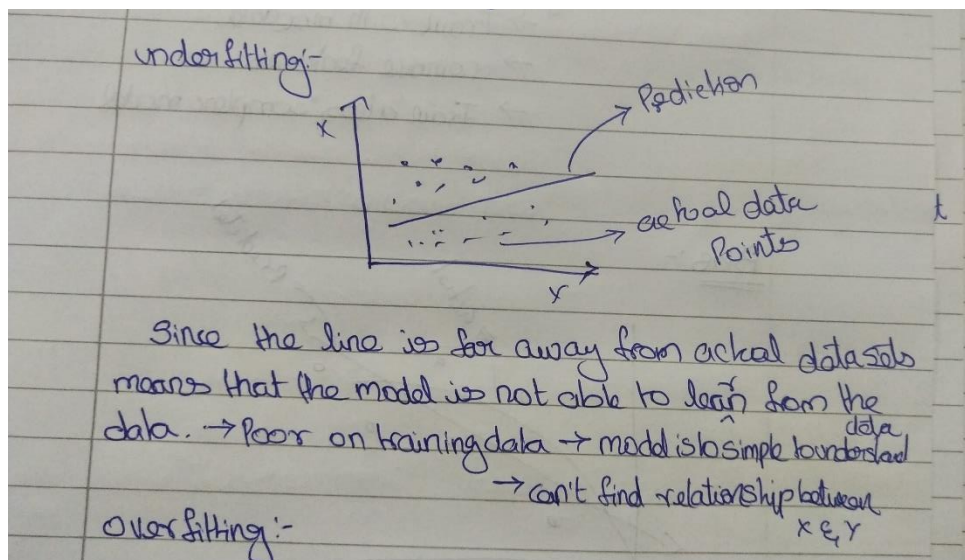 underfitting:-
X
Prediction
actual data
Points
X
t
Since the line is far away from actual datasets
means that the model is not able to learn from the
data. → Poor on training data → model is to simple to understad
data
→ can't find relationship between
X & Y
overfitting:-